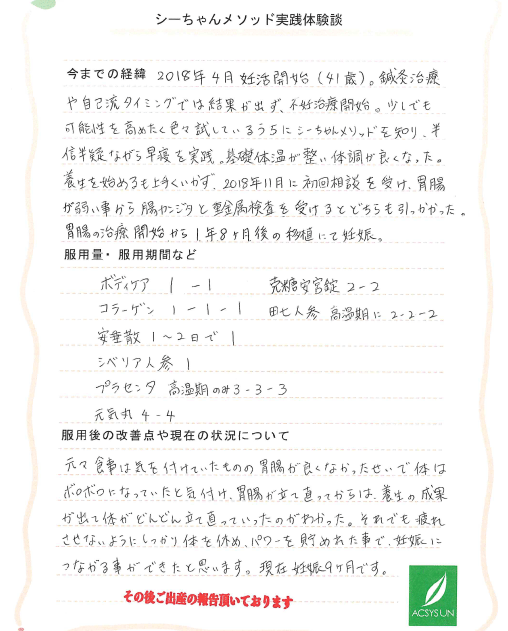 シーちゃんメソッド実践体験談
今までの経緯 2018年4月妊活開始(41歳)。鍼灸治療
や自己流タイミングでは結果が出ず、不妊治療開始。少しでも
可能性を高めたく色々試しているうちにシーちゃんメソッドを知り、半
信半疑ながら早寝を実践。基礎体温が整い体調が良くなった。
養生を始めるも上手くいかず、2018年11月に初回相談を受け、胃腸
が弱い事から腸カンジタと重金属検査を受けるとどちらも引っかかった。
胃腸の治療開始から1年8ヶ月後の移植にて妊娠。
服用量・服用期間など
ボディケア 1-1 克糖安宮錠 2-2
コラーゲン 1-1-1 田七人参 高温期に2-2-2
安垂散 1~2日で1
シベリア人参 1
プラセンタ 高温期のみ3-3-3
元気丸 4-4
服用後の改善点や現在の状況について
元々食事は気を付けていたものの胃腸が良くなかったせいで体は
ボロボロになっていたと気付け、胃腸が立て直ってからは、養生の成果
が出て体がどんどん立て直っていったのがわかった。それでも疲れ
させないようにしっかり体を休め、パワーを貯めれた事で、妊娠に
つながる事ができたと思います。現在妊娠9ヶ月です。
その後ご出産の報告頂いております
ACSYSUN